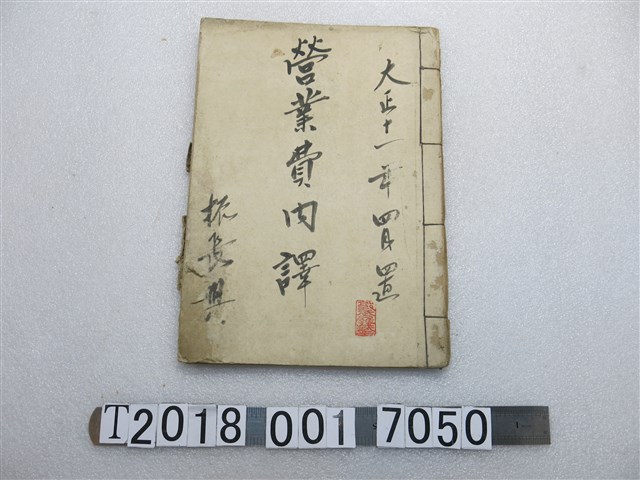 大正十一年四月置
營業費内譯
振長興
T2018 001 7050